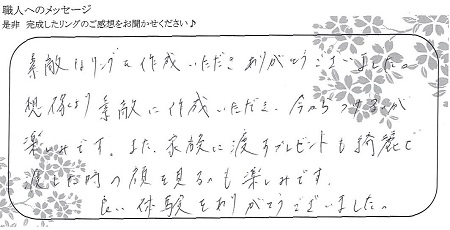 職人へのメッセージ
是非 完成したリングのご感想をお聞かせください♪
素敵なリングを作成いただきありがとうございました。
想像より素敵に作成いただき、今からつけるのが
楽しみです。また、家族に渡すプレゼントも綺麗で
渡した時の顔を見るのも楽しみです。
良い体験をありがとうございました。